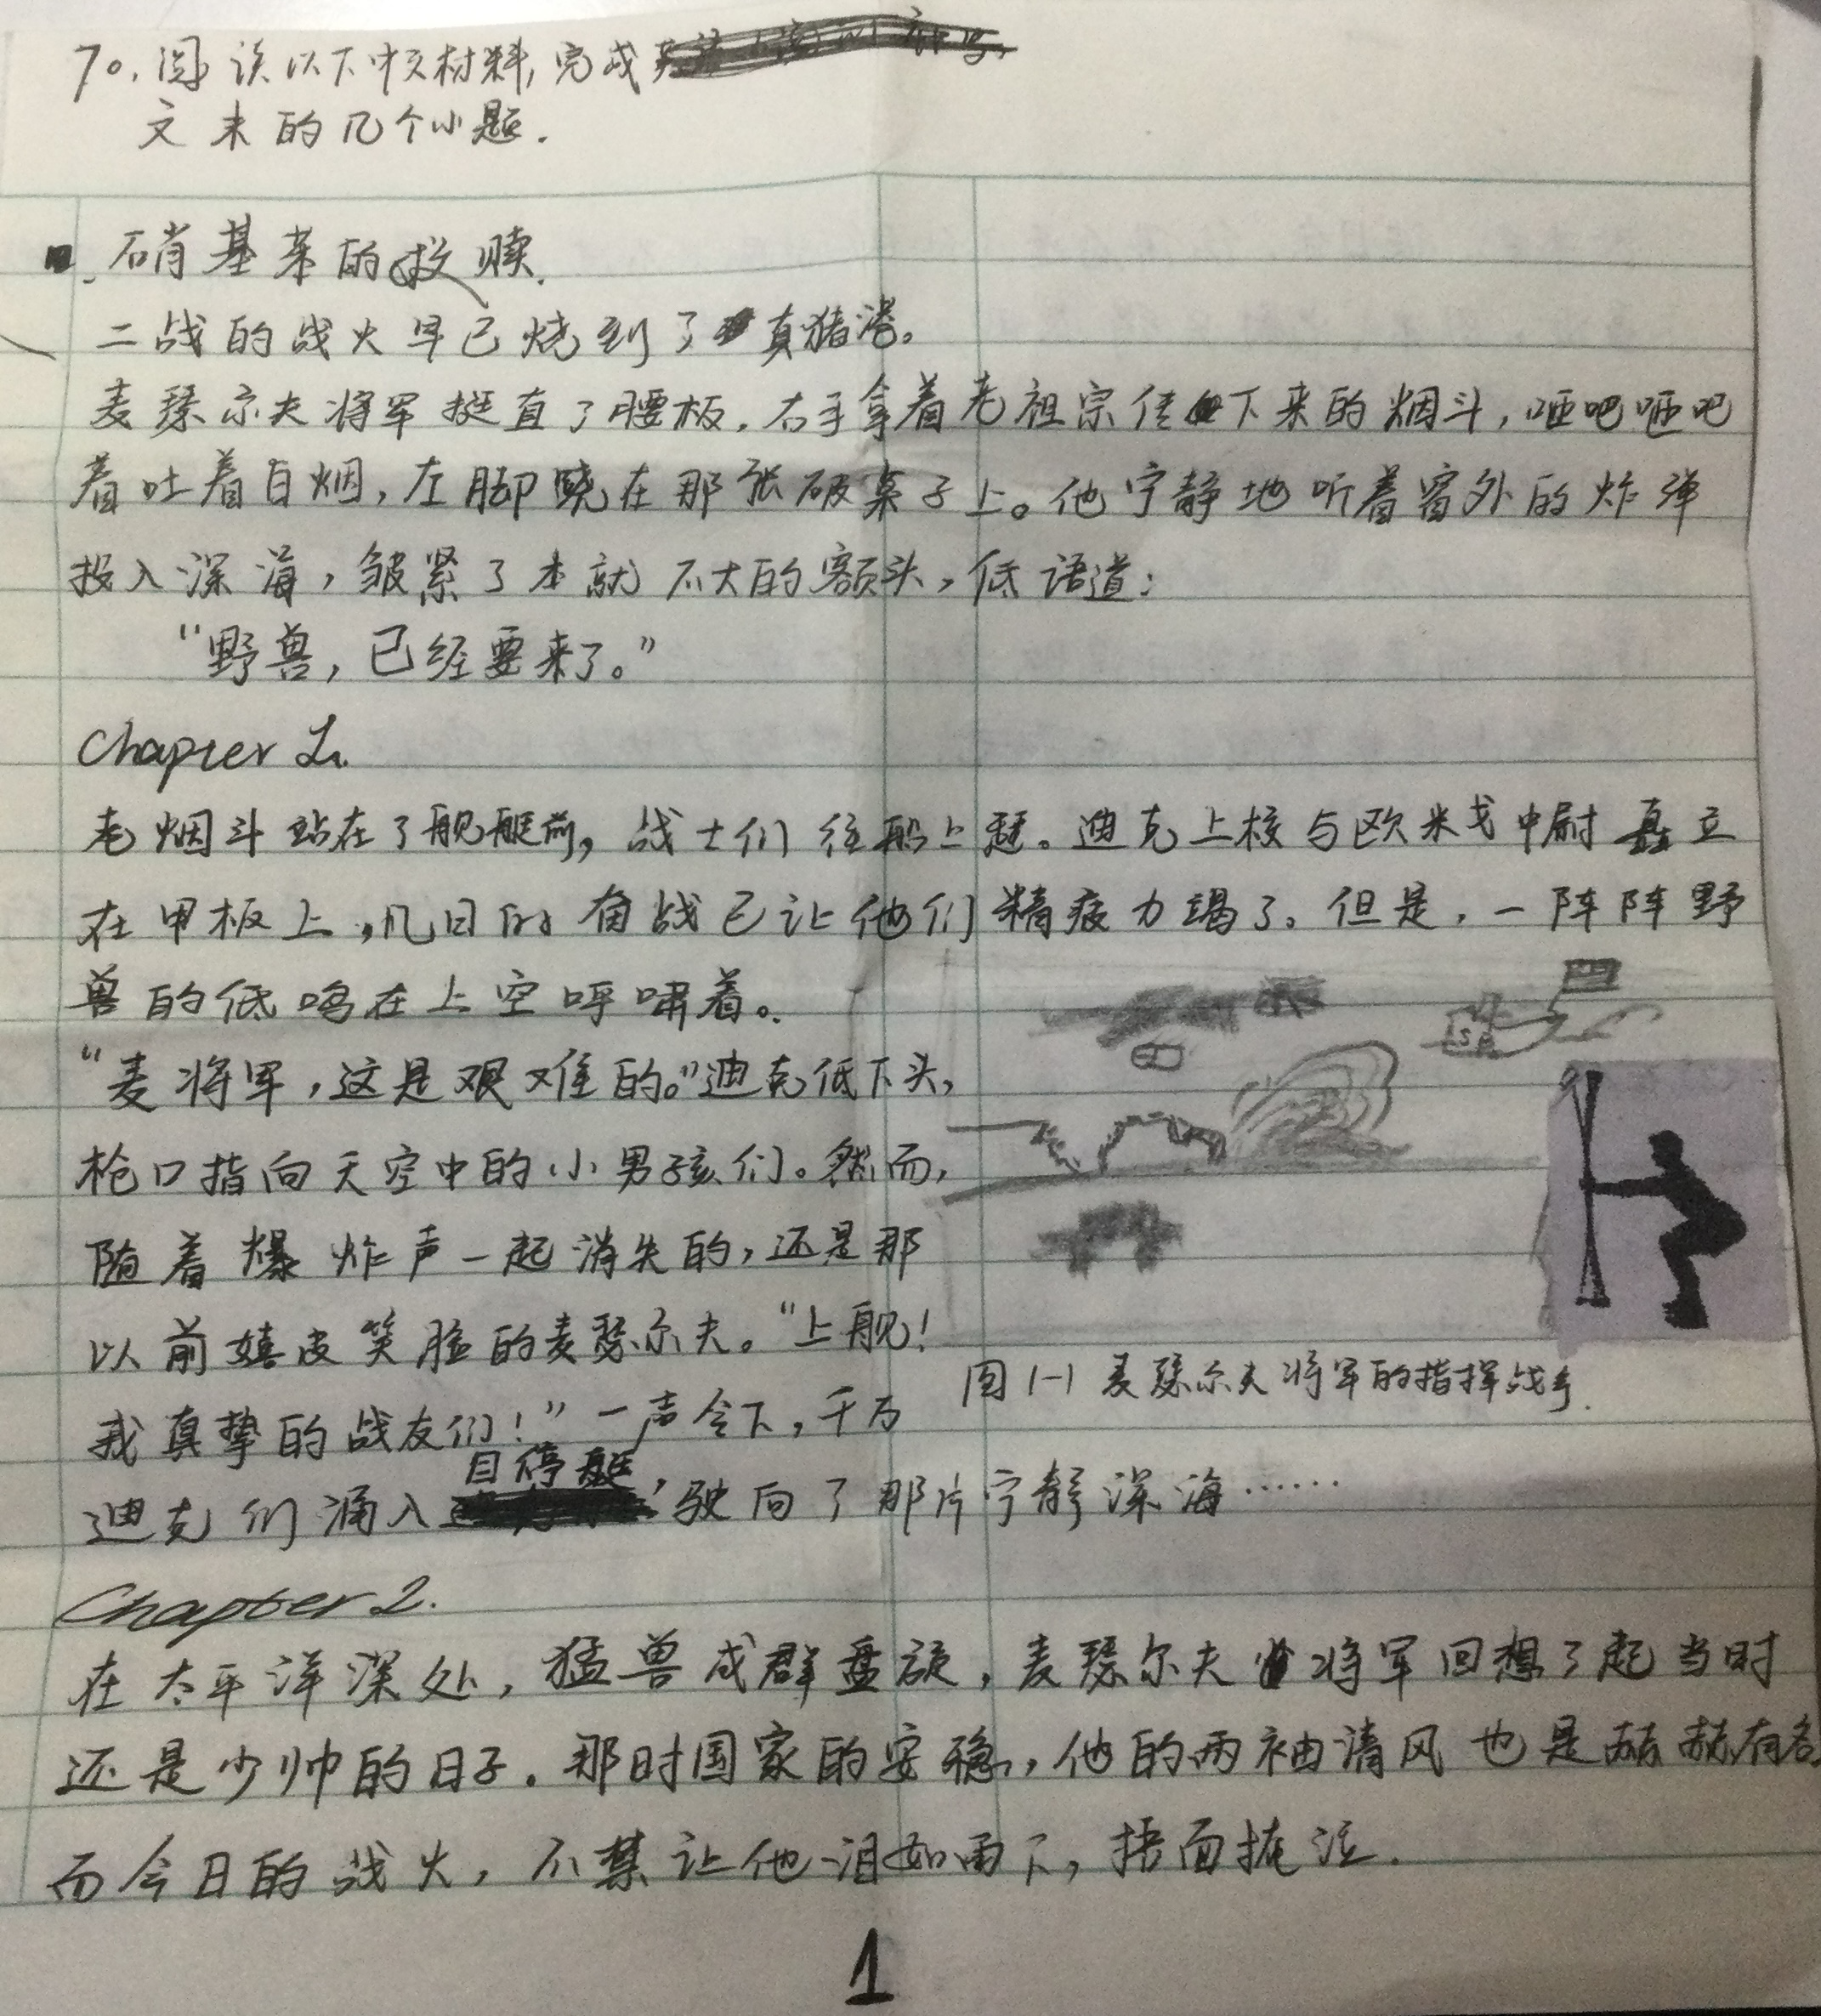 70. 阅读以下中文材料,完成
文末的几个小题.
硝基苯的救赎.
二战的战火早已烧到了真猪港。
麦瑟尔夫将军挺直了腰板,右手拿着老祖宗传下来的烟斗,咂吧咂吧
着吐着白烟,左脚跷在那张破桌子上。他宁静地听着窗外的炸弹
投入深海,皱紧了本就不大的额头,低语道:
“野兽,已经要来了。”
Chapter 1.
老烟斗站在了舰艇前,战士们往船上赶。迪克上校与欧米戈中尉矗立
在甲板上,几日的奋战已让他们精疲力竭了。但是,一阵阵野
兽的低鸣在上空呼啸着。
“麦将军,这是艰难的。”迪克低下头,
枪口指向天空中的小男孩们。然而,
随着爆炸声一起消失的,还是那
以前嬉皮笑脸的麦瑟尔夫。“上舰!
我真挚的战友们!”一声令下,千万
迪克们涌入目停艇,驶向了那片宁静深海……
图1-1 麦瑟尔夫将军的指挥战争.
Chapter 2.
在太平洋深处,猛兽成群盘旋,麦瑟尔夫将军回想了起当时
还是少帅的日子.那时国家的安稳,他的两袖清风也是赫赫有名.
而今日的战火,不禁让他泪如雨下,捂面掩泣.
1